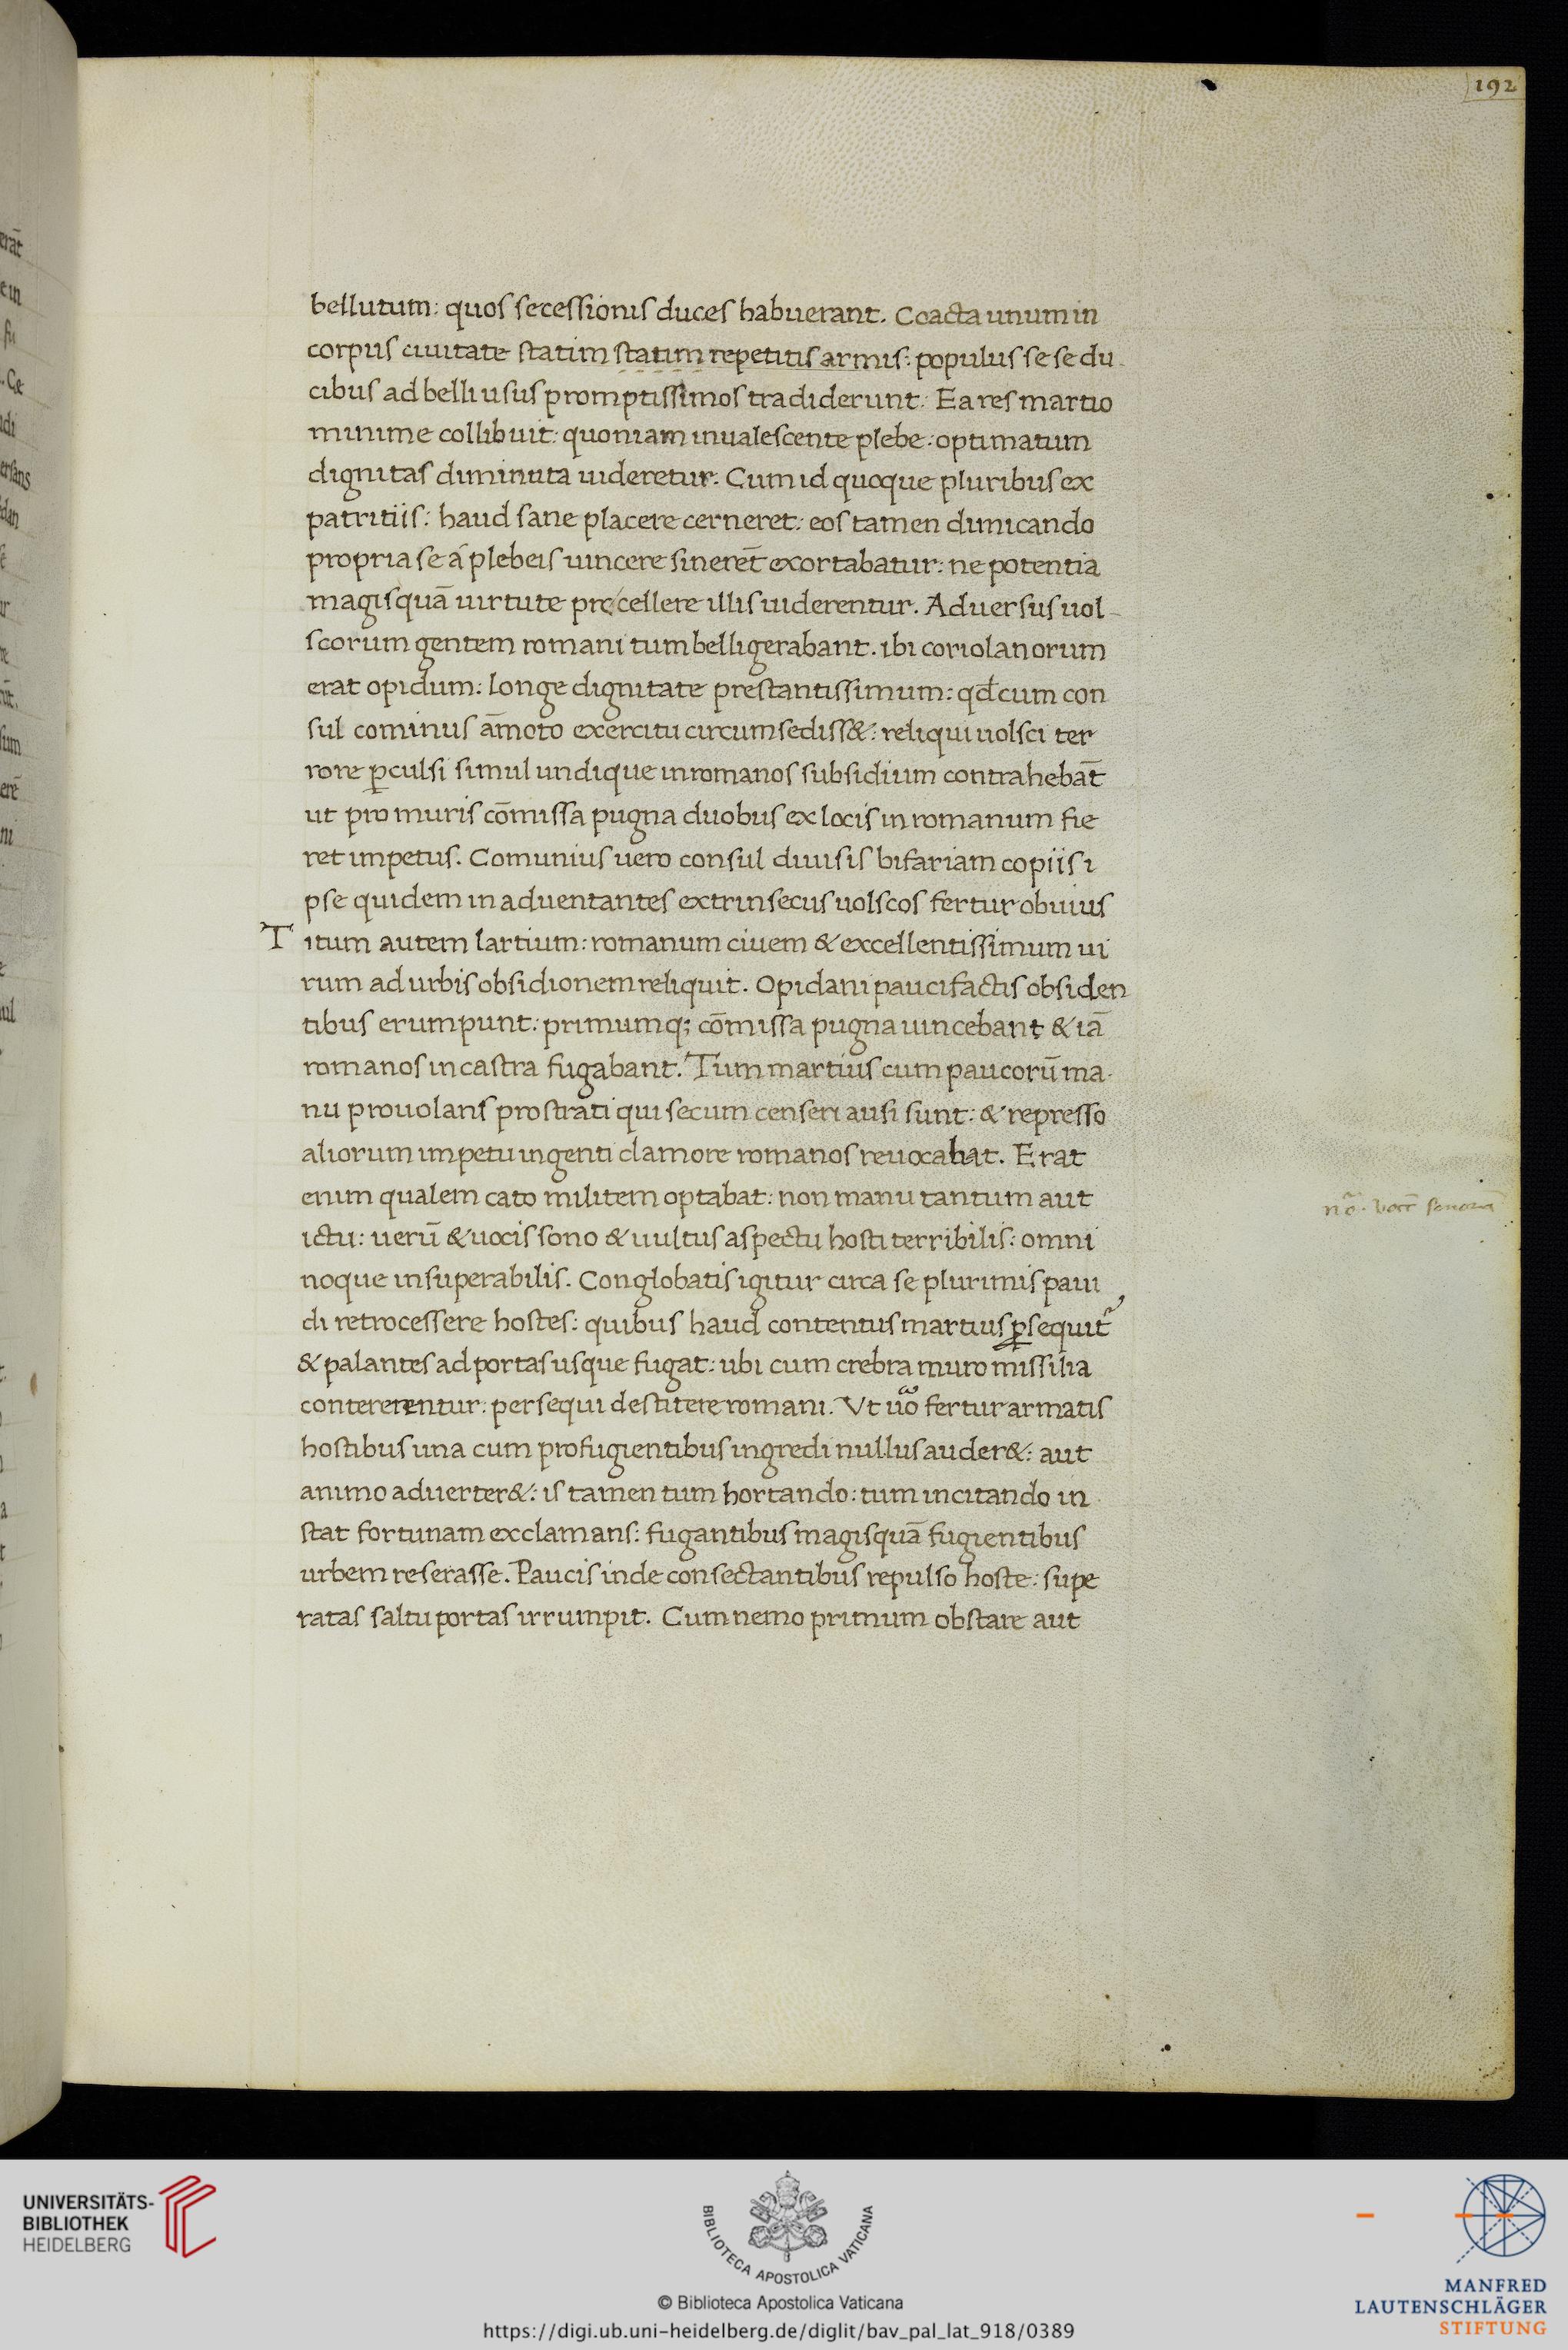 192
bellutum: quos secessionis duces habuerant. Coacta unum in
corpus ciuitate statim statim repetitis armis: populus se se du
cibus ad belli usus promptissimos tradiderunt. Ea res martio
minime collibuit: quoniam inualescente plebe: optimatum
dignitas diminuta uideretur. Cum id quoque pluribus ex
patritiis: haud sane placere cerneret: eos tamen dimicando
propria se a plebeis uincere sinerēt exortabatur: ne potentia
magis quā uirtute precellere illis uiderentur. Aduersus uol
scorum gentem romani tum belligerabant. ibi coriolanorum
erat opidum: longe dignitate prestantissimum: qđ cum con
sul cominus āmoto exercitu circumsediss&: reliqui uolsci ter
rore ꝑculsi simul undique in romanos subsidium contrahebāt
ut pro muris cōmissa pugna duobus ex locis in romanum fie
ret impetus. Comunius uero consul diuisis bifariam copiis i
pse quidem in aduentantes extrinsecus uolscos fertur obuius
Titum autem lartium: romanum ciuem & excellentissimum ui
rum ad urbis obsidionem reliquit. Opidani pauci factis obsiden
tibus erumpunt: primumq; cōmissa pugna uincebant & iā
romanos in castra fugabant. Tum martius cum paucorū ma
nu prouolans prostrati qui secum censeri ausi sunt: & represso
aliorum impetu ingenti clamore romanos reuocabat. Erat
enim qualem cato militem optabat: non manu tantum aut
ictu: uerū & uocis sono & uultus aspectu hosti terribilis: omni
noque insuperabilis. Conglobatis igitur circa se plurimis paui
di retrocessere hostes: quibus haud contentus martius ꝑsequit᷑
& palantes ad portas usque fugat: ubi cum crebra muro missilia
contererentur: persequi destitere romani. Vt uo̅ fertur armatis
hostibus una cum profugientibus ingredi nullus auder&: aut
animo aduerter&: is tamen tum hortando: tum incitando in
stat fortunam exclamans: fugantibus magis quā fugientibus
urbem reserasse. Paucis inde consectantibus repulso hoste: supe
ratas saltu portas irrumpit. Cum nemo primum obstare aut
UNIVERSITÄTS-
BIBLIOTHEK
HEIDELBERG
BIBLIOTECA APOSTOLICA VATICANA
© Biblioteca Apostolica Vaticana
https://digi.ub.uni-heidelberg.de/diglit/bav_pal_lat_918/0389
MANFRED
LAUTENSCHLÄGER
STIFTUNG